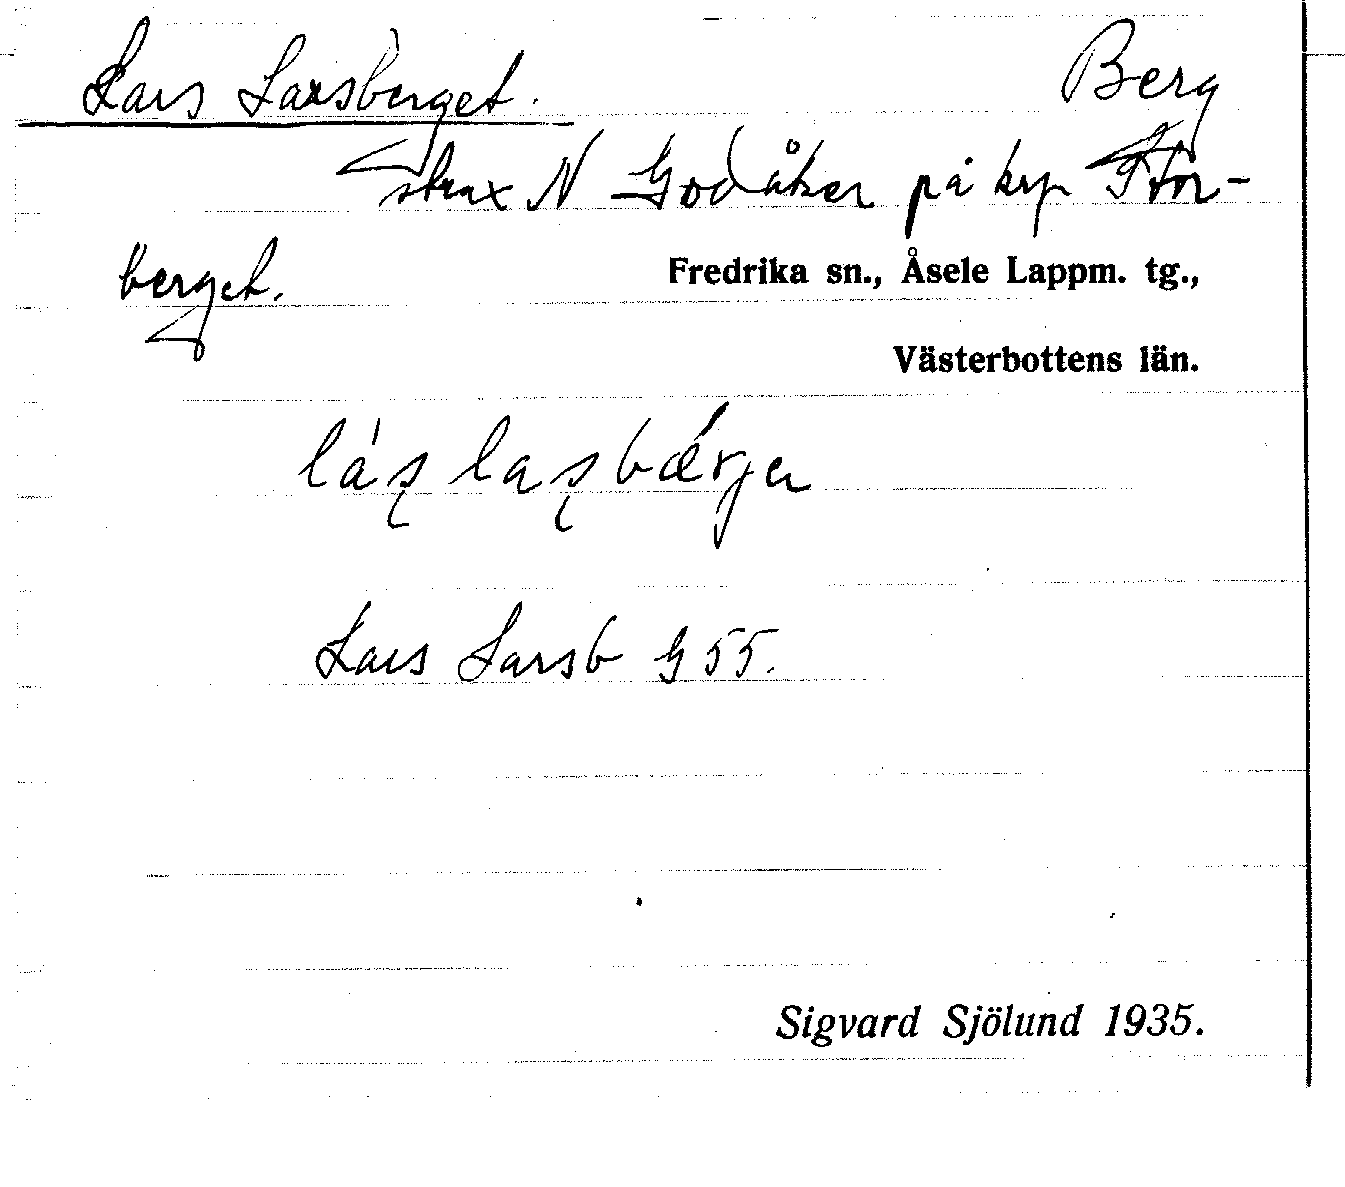 Lars Larsberget. Berg
strax N Godåker på krp Stor-
berget.
Fredrika sn., Åsele Lappm. tg.,
Västerbottens län.
lá'ʂ laʂbǽrjen
Lars Larsb G 55.
Sigvard Sjölund 1935.